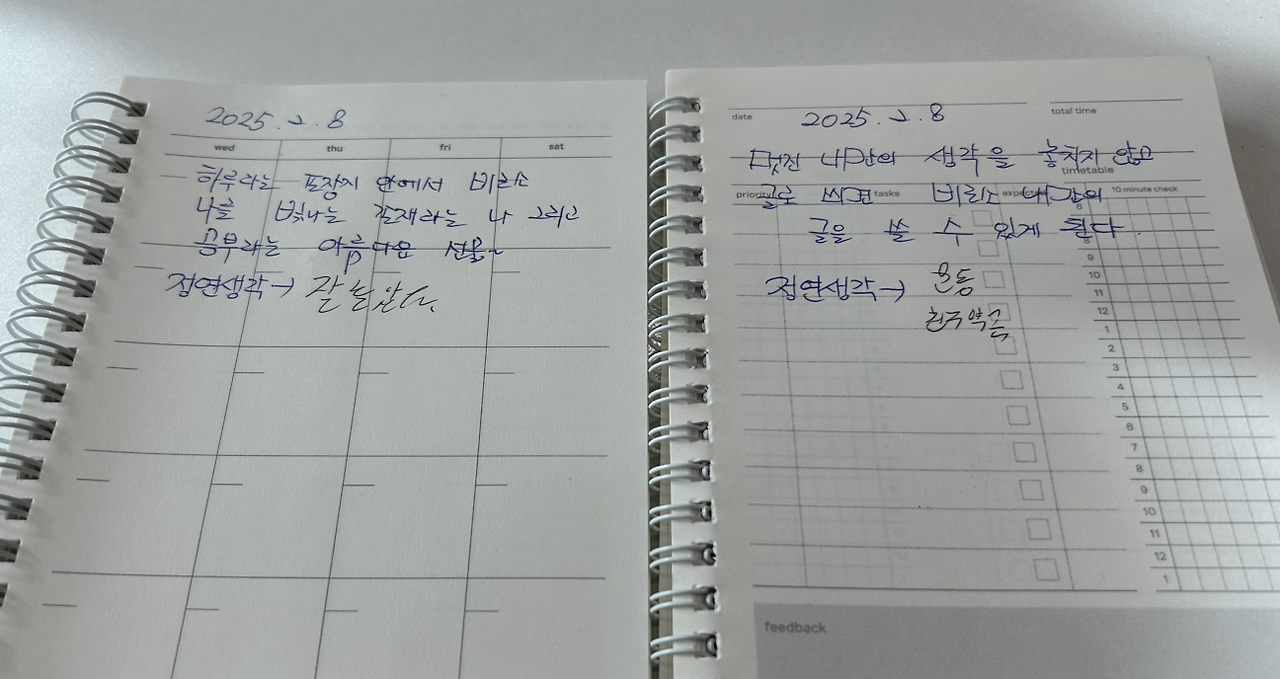 2025. 2. 8
wed thu fri sat
하루라는 포장지 안에서 비로소
나를 빛나는 존재라는 나 그리고
공부라는 아름다운 선물~
정연생각→ 잘 놀았다.
date 2025. 2. 8 total time
멋진 나만의 생각을 놓치지 않고
timetable
priority tasks 10 minute check
글로 쓰면 비로소 나만의
6
글을 쓸 수 있게 된다.
8
9
정연생각→ 운동
10
11
친구약속
12
1
2
3
4
5
6
7
8
9
10
11
12
1
feedback